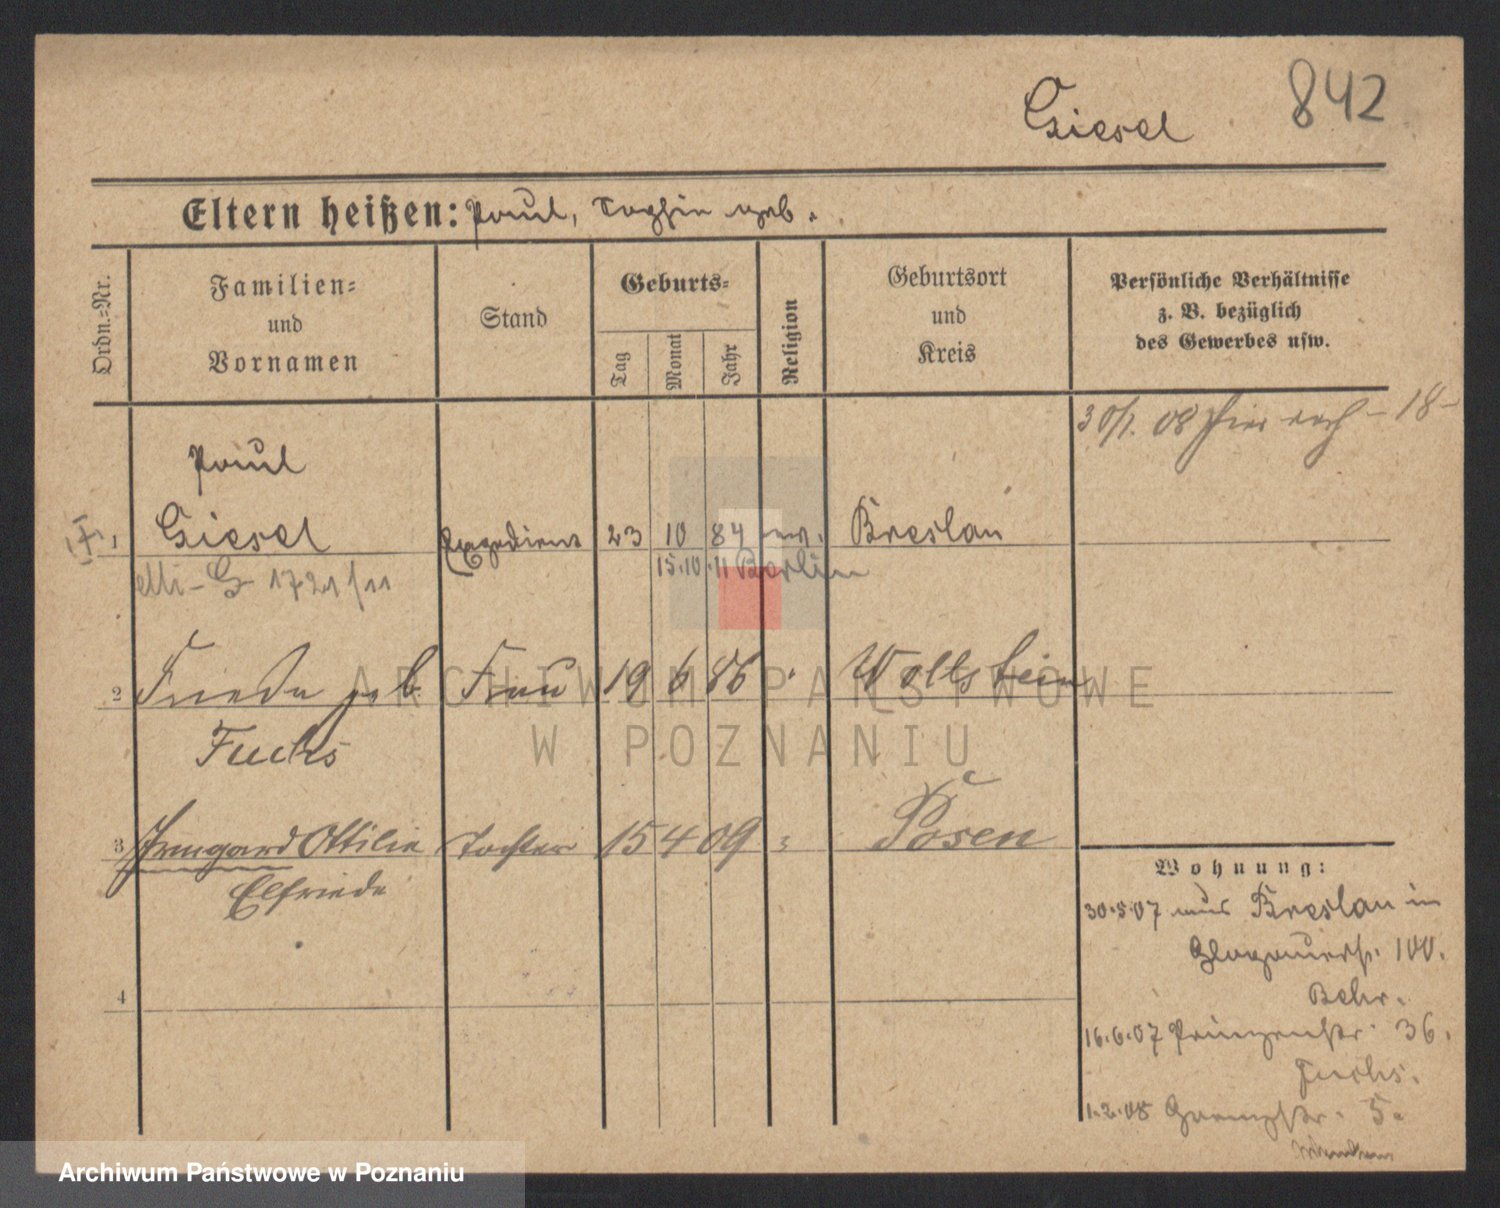 842
Giesel
Eltern heißen: Paul, Sophie geb.
Ordn.-Nr.
Familien-
und
Vornamen
Stand
Geburts-
Tag
Monat
Jahr
Religion
Geburtsort
und
Kreis
Persönliche Verhältnisse
z. B. bezüglich
des Gewerbes usw.
30/1. 08 hier noch - 18 -
Paul
1 Giesel Expedient 23 10 84 ev. Breslau
1721/11 15.10.11 Berlin
2 Frieda geb. Frau 19 6 86 " Wollstein
Fuchs
3 Irmgard Ottilie Tochter 15 4 09 " Posen
Elfriede
4
Wohnung:
30.5.07 aus Breslau in
Glogauerstr. 100.
Behr.
16.6.07 Prinzenstr. 36.
Fuchs.
1.2.08 5.
ARCHIWUM PAŃSTWOWE
W POZNANIU
Archiwum Państwowe w Poznaniu